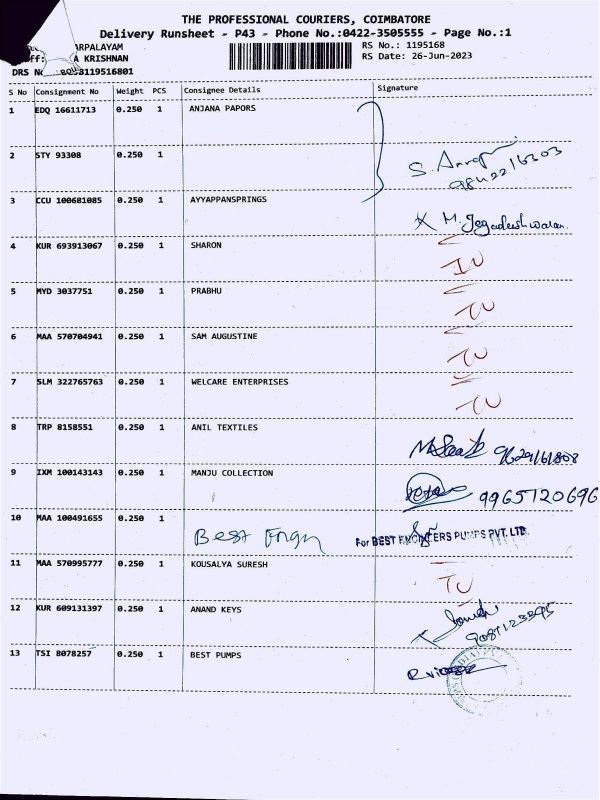 THE PROFESSIONAL COURIERS, COIMBATORE
Delivery Runsheet - P43 - Phone No.:0422-3505555 - Page No.:1
ARPALAYAM RS No.: 1195168
A KRISHNAN RS Date: 26-Jun-2023
DRS No 3119516801
S No Consignment No Weight PCS Consignee Details Signature
1 EDQ 16611713 0.250 1 ANJANA PAPORS
2 STY 93308 0.250 1
S.
3 CCU 100681085 0.250 1 AYYAPPANSPRINGS
M. Jegadeshwaran
4 KUR 693913067 0.250 1 SHARON
5 MYD 3037751 0.250 1 PRABHU
6 MAA 570704941 0.250 1 SAM AUGUSTINE
7 SLM 322765763 0.250 1 WELCARE ENTERPRISES
8 TRP 8158551 0.250 1 ANIL TEXTILES
9629161808
9 IXM 100143143 0.250 1 MANJU COLLECTION
9965720696
10 MAA 100491655 0.250 1
Best Engn For BEST ENGINEERS PUMPS PVT. LTD.
11 MAA 570995777 0.250 1 KOUSALYA SURESH
12 KUR 609131397 0.250 1 ANAND KEYS
13 TSI 8078257 0.250 1 BEST PUMPS